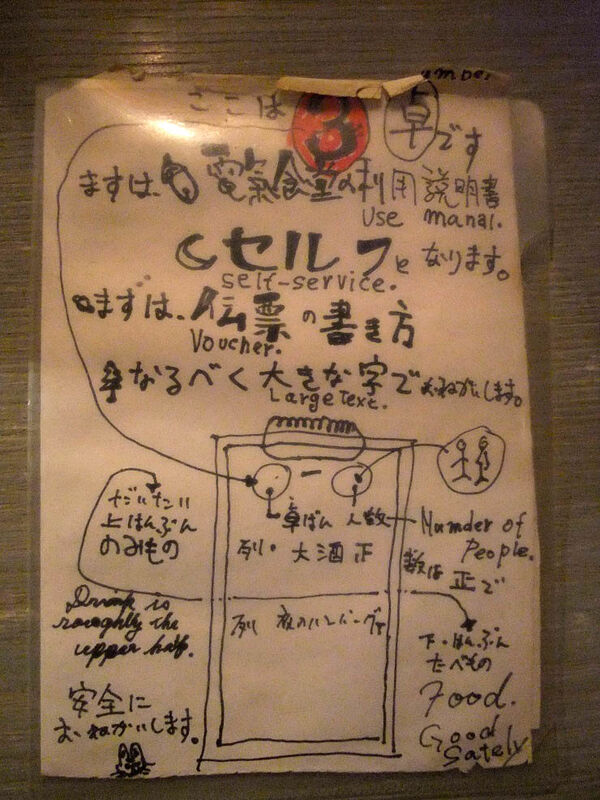 ここは 3 卓です
まずは、電氣食堂の利用説明書
Use manal.
セルフとなります。
self-service.
まずは、伝票の書き方
Voucher.
なるべく大きな字でおねがいします。
Large Text.
卓ばん 人数
Mumder of People.
数は正で
列・大酒正
だいたい
上はんぶん
のみもの
Drink is
roughly the
upper half.
列 夜のハンバーグ正
下・はんぶん
たべもの
Food.
Good
Sately
安全に
おねがいします。